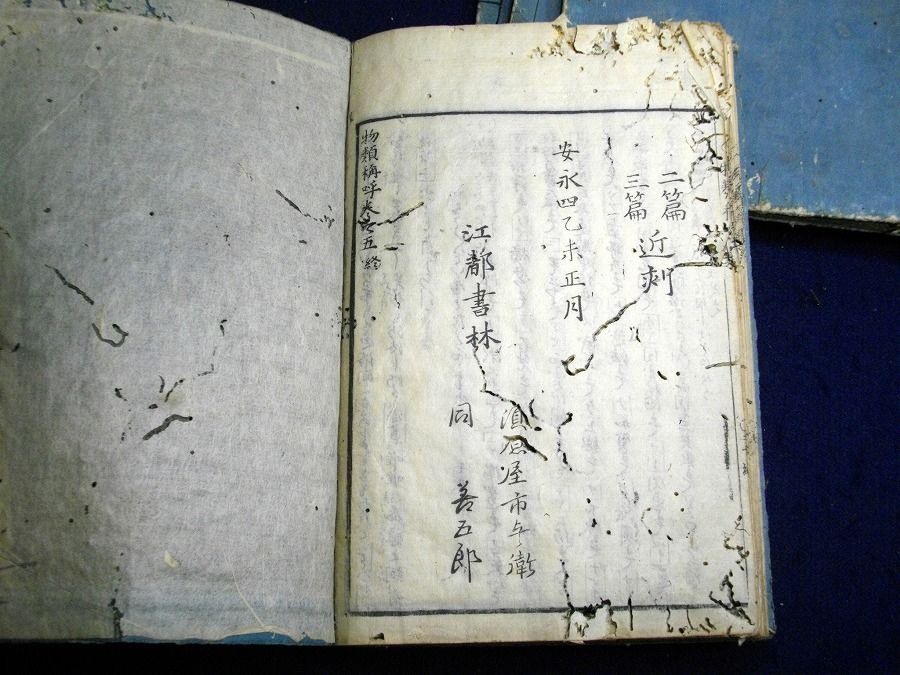 二篇
三篇 近刻
安永四乙未正月
江都書林
須原屋市兵衛
同 善五郎
物類稱呼巻之五終